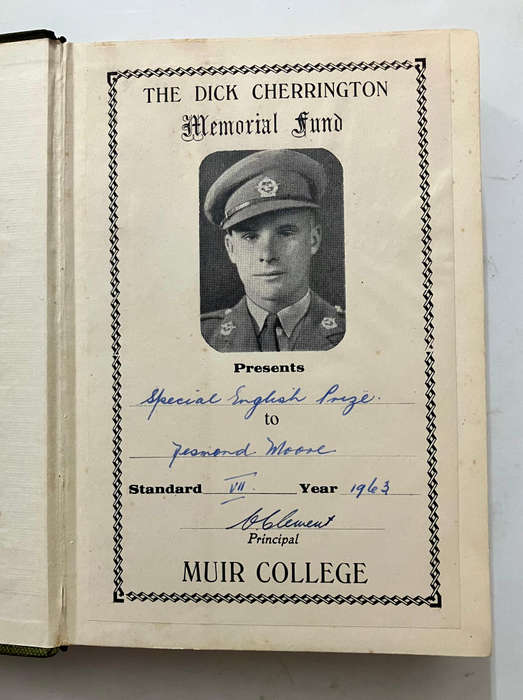 THE DICK CHERRINGTON
Memorial Fund
Presents
Special English Prize.
to
Desmond Moore
Standard VII. Year 1963
Clement
Principal
MUIR COLLEGE